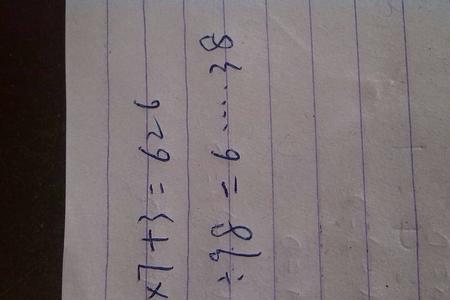 ×7+3=626
÷98=6……38